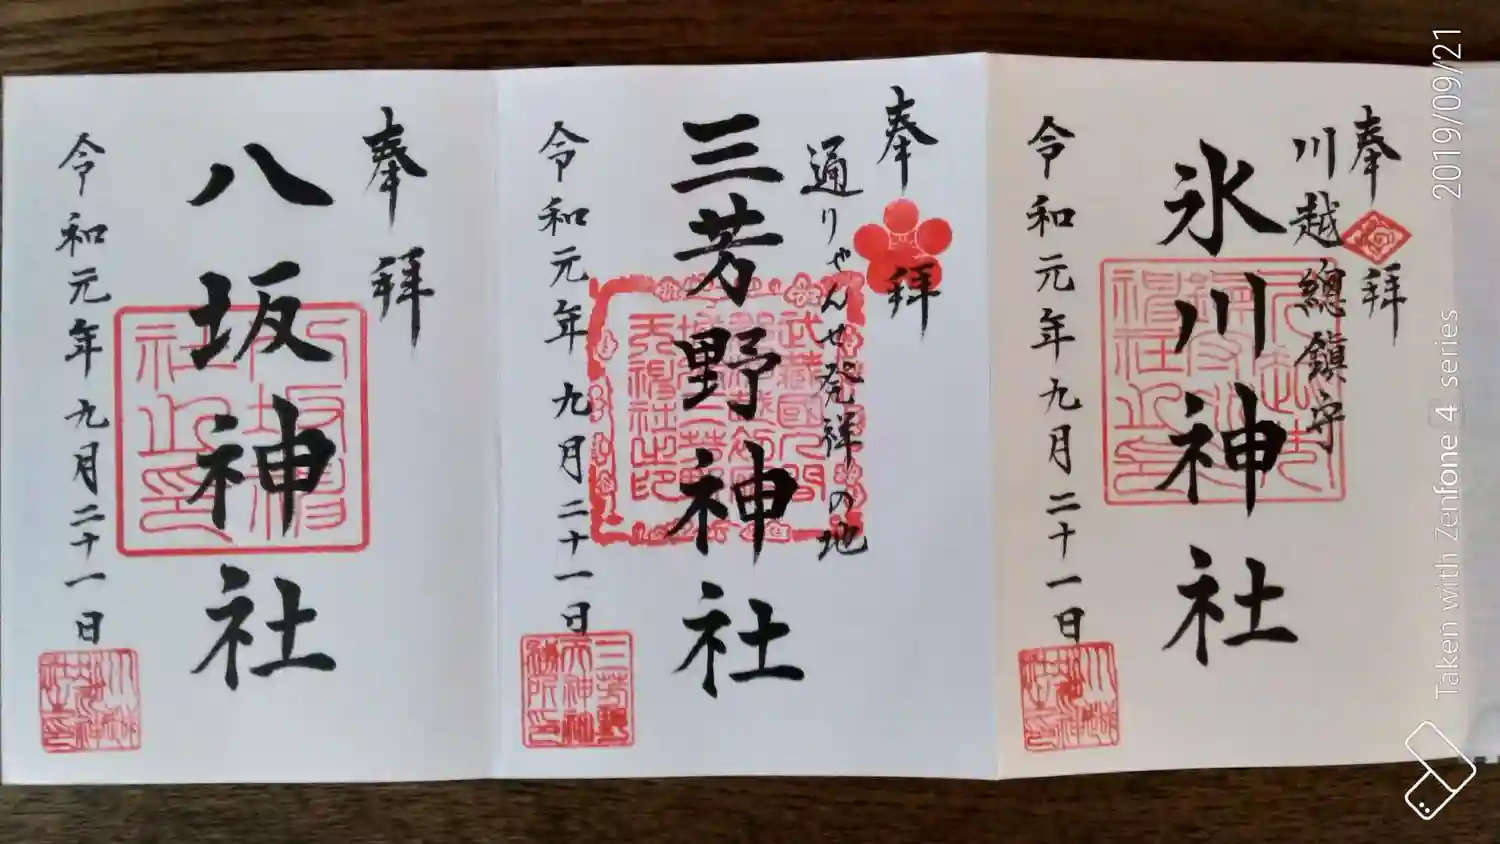 奉拝
川越總鎮守
氷川神社
令和元年九月二十一日
奉拝
通りゃんせ発祥の地
三芳野神社
令和元年九月二十一日
奉拝
八坂神社
令和元年九月二十一日
2019/09/21
Taken with Zenfone 4 series